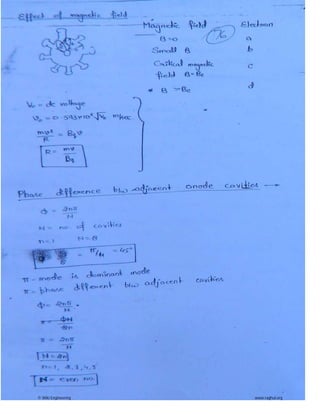 Effect of magnetic field
Magnetic field Electron
B=0 a
Small B b
Critical magnetic
field B=Bc c
* B >Bc d
V₀ = dc voltage
U₀ = 0.593×10⁶ √V₀ m/sec
mv²/R = Bqv
R = mv/Bq
Phase difference b/w adjacent anode cavities
Φ = 2nπ/N
N = no. of cavities
n=1 N=8
= π/4 = 45°
π-mode is dominant mode
π = phase different b/w adjacent cavities
Φ = 2nπ/N
π = ΦN/2n
π = 2nπ/N
N=2n
n=1, 2, 3, 4, 5
N = even no.
www.raghul.org